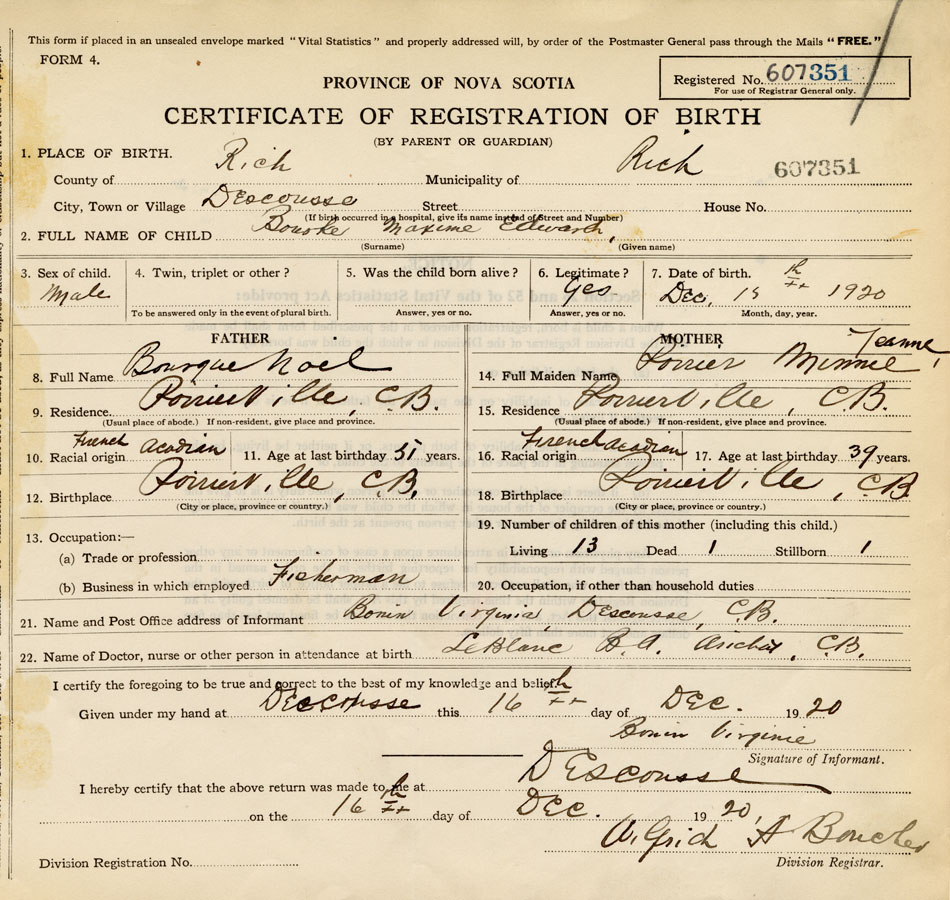 This form if placed in an unsealed envelope marked "Vital Statistics" and properly addressed will, by order of the Postmaster General pass through the Mails "FREE."
FORM 4.
Registered No. 607351
For use of Registrar General only.
PROVINCE OF NOVA SCOTIA
CERTIFICATE OF REGISTRATION OF BIRTH
(BY PARENT OR GUARDIAN)
607351
1. PLACE OF BIRTH.
County of Rich Municipality of Rich
City, Town or Village Descousse Street House No.
(If birth occurred in a hospital, give its name instead of Street and Number)
2. FULL NAME OF CHILD Bourke Maxime Edward,
(Surname) (Given name)
3. Sex of child. Male
4. Twin, triplet or other? To be answered only in the event of plural birth.
5. Was the child born alive? Answer, yes or no.
6. Legitimate? Yes Answer, yes or no.
7. Date of birth. Dec, 15th 1920 Month, day, year.
FATHER
8. Full Name Bourque Noel
9. Residence. PoirierVille, C.B.
(Usual place of abode.) If non-resident, give place and province.
10. Racial origin French Acadian 11. Age at last birthday 51 years.
12. Birthplace PoirierVille, C.B,
(City or place, province or country.)
13. Occupation:—
(a) Trade or profession
(b) Business in which employed Fisherman
MOTHER
14. Full Maiden Name Poirier Minnie Jeanne,
15. Residence PoirierVille, C.B.
(Usual place of abode.) If non-resident, give place and province.
16. Racial origin French Acadian 17. Age at last birthday 39 years.
18. Birthplace PoirierVille, C.B.
(City or place, province or country.)
19. Number of children of this mother (including this child.)
Living 13 Dead 1 Stillborn 1
20. Occupation, if other than household duties
21. Name and Post Office address of Informant Bonin Virginia, Descousse, C.B.
22. Name of Doctor, nurse or other person in attendance at birth. LeBlanc B.A. Arichat, C.B.
I certify the foregoing to be true and correct to the best of my knowledge and belief.
Given under my hand at Descousse this 16th day of DEC. 1920
Bonin Virginie
Signature of Informant.
I hereby certify that the above return was made to me at DEscousse
on the 16th day of DEC. 1920,
Wilfrid A Boucher
Division Registration No. Division Registrar.